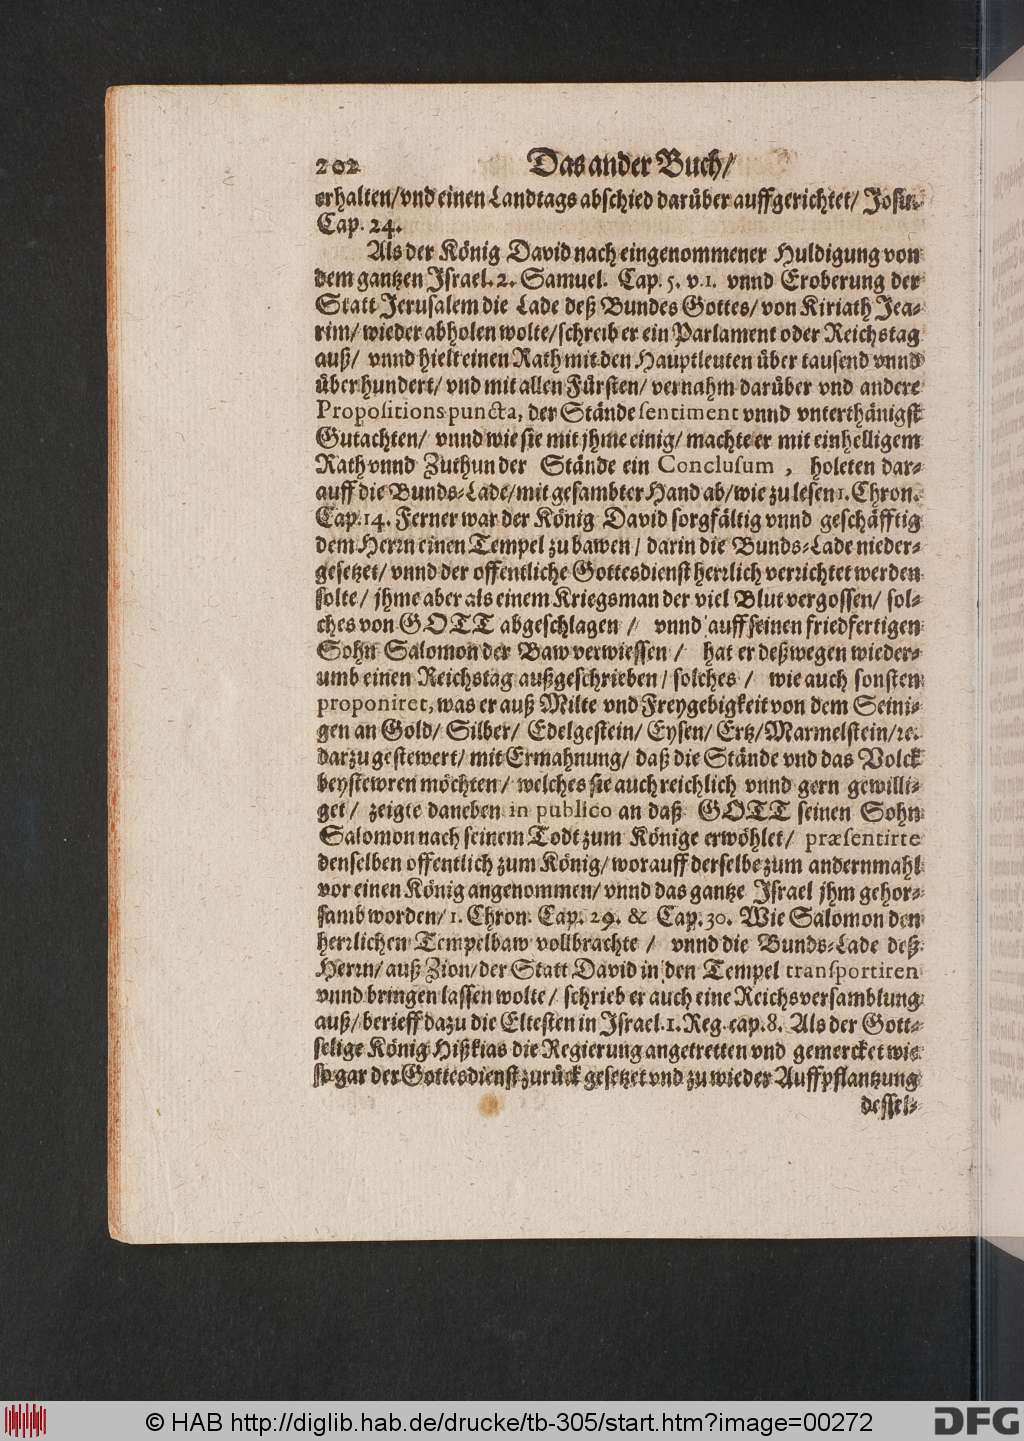 202 Das ander Buch/
erhalten/vnd einen Landtags abschied darüber auffgerichtet/ Josu.
Cap. 24.
Als der König David nach eingenommener Huldigung von
dem gantzen Jsrael. 2. Samuel. Cap. 5. v. 1. vnnd Eroberung der
Statt Jerusalem die Lade deß Bundes Gottes/ von Kiriath Jea-
rim/ wieder abholen wolte/ schreib er ein Parlament oder Reichstag
auß/ vnnd hielt einen Rath mit den Hauptleuten über tausend vnnd
über hundert/ vnd mit allen Fürsten/ vernahm darüber vnd andere
Propositionspuncta, der Stände sentiment vnnd vnterthänigst
Gutachten/ vnnd wie sie mit jhme einig/ machte er mit einhelligem
Rath vnnd Zuthun der Stände ein Conclusum, holeten dar-
auff die Bunds-Lade/ mit gesambter Hand ab/ wie zu lesen 1. Chron.
Cap. 14. Ferner war der König David sorgfältig vnnd geschäfftig
dem Herrn einen Tempel zu bawen/ darin die Bunds-Lade nieder-
gesetzet/ vnnd der offentliche Gottesdienst herrlich verrichtet werden
solte/ jhme aber als einem Kriegsman der viel Blut vergossen/ sol-
ches von GOTT abgeschlagen/ vnnd auff seinen friedfertigen
Sohn Salomon der Baw verwiessen/ hat er deßwegen wieder-
umb einen Reichstag außgeschrieben/ solches/ wie auch sonsten
proponiret, was er auß Milte vnd Freygebigkeit von dem Seini-
gen an Gold/ Silber/ Edelgestein/ Eysen/ Ertz/ Marmelstein/ ꝛc.
darzu gestewert/ mit Ermahnung/ daß die Stände vnd das Volck
beystewren möchten/ welches sie auch reichlich vnnd gern gewilli-
get/ zeigte daneben in publico an daß GOTT seinen Sohn
Salomon nach seinem Todt zum Könige erwöhlet/ præsentirte
denselben offentlich zum König/ worauff derselbe zum andernmahl
vor einen König angenommen/ vnnd das gantze Jsrael jhm gehor-
samb worden/ 1. Chron. Cap. 29. & Cap. 30. Wie Salomon den
herrlichen Tempelbaw vollbrachte/ vnnd die Bunds-Lade deß
Herrn/ auß Zion/ der Statt David in den Tempel transportiren
vnnd bringen lassen wolte/ schrieb er auch eine Reichsversamblung
auß/ berieff dazu die Eltesten in Jsrael. 1. Reg. cap. 8. Als der Gott-
selige König Hißkias die Regierung angetretten vnd gemercket wie
so gar der Gottesdienst zurück gesetzet vnd zu wieder Auffpflantzung
dessel-
© HAB http://diglib.hab.de/drucke/tb-305/start.htm?image=00272
DFG